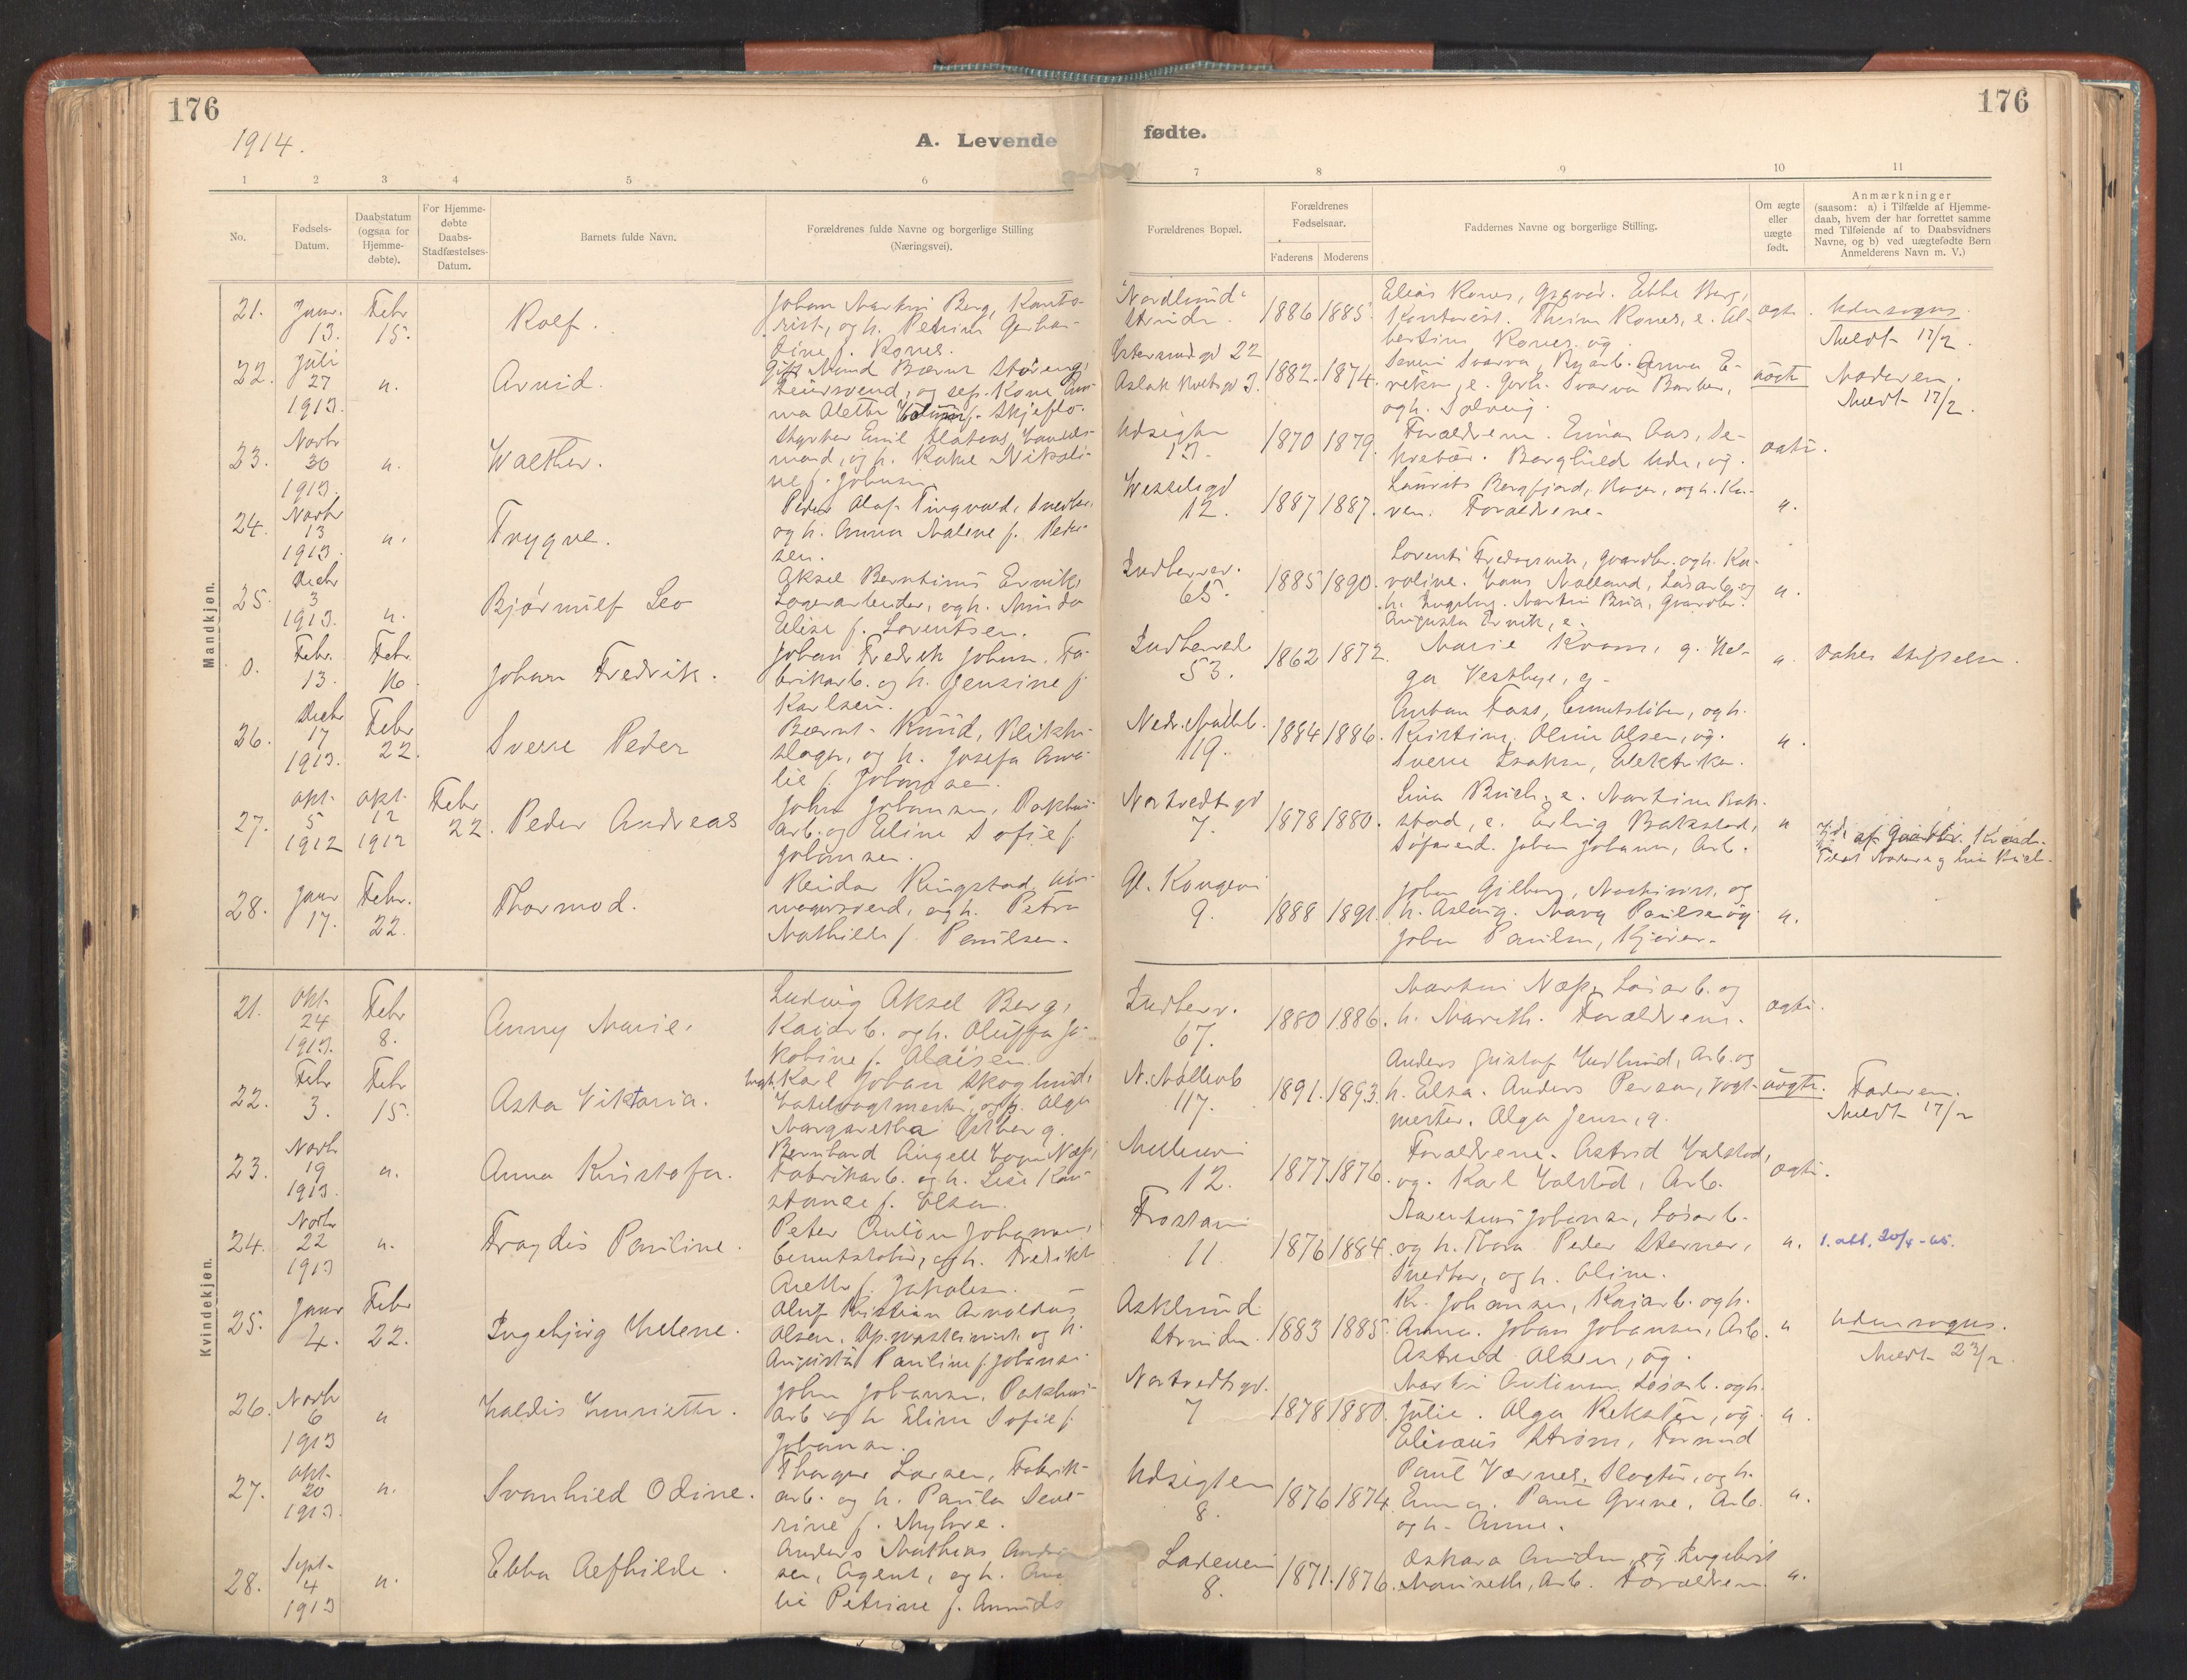 176
176
1914.
A. Levende fødte.
1 2 3 4 5 6 7 8 9 10 11
No.
Fødsels-
Datum.
Daabsdatum
(ogsaa for
Hjemme-
døbte).
For Hjemme-
døbte
Daabs-
Stadfæstelses-
Datum.
Barnets fulde Navn.
Forældrenes fulde Navne og borgerlige Stilling
(Næringsvei).
Forældrenes Bopæl.
Forældrenes
Fødselsaar.
Faderens
Moderens
Faddernes Navne og borgerlige Stilling.
Om ægte
eller
uægte
født.
Anmærkninger
(saasom: a) i Tilfælde af Hjemme-
daab, hvem der har forrettet samme
med Tilføiende af to Daabsvidners
Navne, og b) ved uægtefødte Børn
Anmelderens Navn m. V.)
Mandkjøn.
21.
Janr.
13.
Febr
15.
Rolf.
Johan Martin Berg, Konto-
rist, og h. Petrine Gerhar-
dine f. Rones.
"Nordlund"
Strinden
1886 1885.
Elias Rones, Ebbe Berg,
Kontorist. Rones, e. Al-
bertine Rones, ug.
ægte.
Udensogns.
Meldt 17/2.
22.
Juli
27
1913.
u.
Arvid.
Gift Mand Bærnt Støreng,
og sep. Kone An-
na Alette f. Skjeflo.
Østersundsgd 22
1882. 1874.
og h. Solveig.
uægte
Moderen.
Meldt 17/2.
23.
Novbr
30
1913.
u.
Walther.
Styrker Emil Mateas, Handels-
mand, og h. Rakel Nikoli-
ne f. Johnsen
Udsigten
13.
1870 1879.
Forældrene. Einar Aas, Se-
kretær. Borghild Uden, ug.
ægte.
24.
Novbr
13
1913.
u.
Trygve.
Peder Olaf Tingvold, Snedker,
og h. Anna Malene f. Peder-
sen.
Wesselsgd
12.
1887 1887.
Laurits Bergfjord, og h. Ka-
ren. Forældrene.
u.
25.
Decbr
3
1913.
u.
Bjørnulf Leo
Aksel Berntinus Ervik,
Lagerarbeider, og h. Minda
Elise f. Lorentsen.
Indherrev.
65.
1885 1890.
og h. Ka-
roline. Hans Molland, Løsarb. og
h. Ingeborg. Martin Bua,
Augusta Ervik, e.
u.
0.
Febr.
13.
Febr
16.
Johan Fredrik.
Johan Fredrik Johnsen, Fa-
brikarb. og h. Jensine f.
Karlsen.
Indherred
53.
1862 1872.
Marie Kvam, g. Hel-
ga Vestbye, g.
u.
Vaker Stiftelse.
26.
Decbr
17
1913.
Febr
22.
Sverre Peder
Bærnt Knud, Blikken-
slager, og h. Josefa Ama-
lie f. Johansen.
Nedr. Møllenb.
119.
1884 1886.
Anton Foss, Cementstøber, og h.
Kristine, Oline Olsen, ug.
Sverre Isaksen, Elektriker.
u.
27.
Okt.
5
1912
Okt.
12
1912
Febr
22.
Peder Andreas
John Johansen, Pakhus-
arb. og Eline Sofie f.
Johansen.
Nostvedtsgd
7.
1878 1880.
Lina Buch, e. Martine Bak-
stad, e. Erling Bakstad,
Søfarend. Johan Johansen, Arb.
u
28.
Janr
17.
Febr.
22.
Thormod.
Reidar Ringstad, Ur-
magersvend, og h. Petra
Mathilde f. Paulsen.
Gl. Kongevei
9.
1888 1891.
Johan Gilberg, Maskinist, og
h. Aslaug. Mary Paulsen ug
Johan Paulsen, Kjører.
u.
Kvindekjøn.
21.
Okt.
24
1913.
Febr
8.
Anny Marie.
Ludvig Aksel Berg,
Kaiarb. og h. Oluffa Ja-
kobine f. Olaisen
Indherrv.
67.
1880 1886.
Martin Næss, Løsarb. og
h. Mareth. Forældrene.
ægte.
22.
Febr
3.
Febr
15.
Asta Viktoria.
Ungk. Karl Johan Skoglund,
Hotelvagtmester, og p. Olga
Margaretha Östberg.
N. Møllenb
117.
1891. 1893.
Anders Gustaf Hedlund, Arb. og
h. Elsa. Anders Person, Vagt-
mester. Olga Jensen, g.
uægte.
Faderen.
Meldt 17/2
23.
Novbr
19
1913.
u.
Anna Kristofa.
Bernhard Angell Hagen Næss,
Fabrikarb. og h. Lise Kon-
stanse f. Olsen.
Mellemvei
12.
1877. 1876.
Forældrene. Astrid Halstad,
ug. Karl Halstad, Arb.
ægte.
24.
Novbr
22
1913
u.
Frøydis Pauline.
Peter Anton Johansen,
Cementstøber, og h. Fredrikke
Anette f. Jakobsen.
Frostavei
11.
1876 1884.
Marentius Johansen, Løsarb.
og h. Thora. Peder Sterner,
Snedker, og h. Oline.
u.
1. att. 20/4-45.
25.
Janr
4.
Febr
22.
Ingebjørg Helene.
Oluf Kristian Arnoldus
Olsen, og h.
Augusta Pauline f. Johansen
Asklund
Strinden
1883 1885.
Kr. Johansen, Kaiarb. og h.
Anna. Johan Johansen, Arb.
Astrid Olsen, ug.
u
Udensogns.
Meldt 23/2.
26.
Novbr
6
1913
u
Haldis Henriette.
John Johansen, Pakhus-
arb. og h. Eline Sofie f.
Johansen.
Nostvedtsgd.
7
1878 1880.
Martin Antonsen, Løsarb. og h.
Julie. Olga Reksten, ug.
Elisæus Strøm, Formand
u.
27.
Okt.
20
1913.
u.
Svanhild Odine.
Thorger Larsen, Fabrik-
arb. og h. Paula Seve-
rine f. Myhre.
Udsigten
8.
1876 1874.
Paul Værnes, Slagter, og h.
Emma. Paul Greve, Arb.
og h. Anne.
u.
28.
Sept.
4
1913
u.
Ebba Alfhilde.
Anders Mathias
sen, Agent, og h. Ama
lie Petrine f. Amunds
Ladevei
8.
1871. 1876.
Oskara ug. Ingebrigt
Mauseth, Arb. Forældrene.
u.